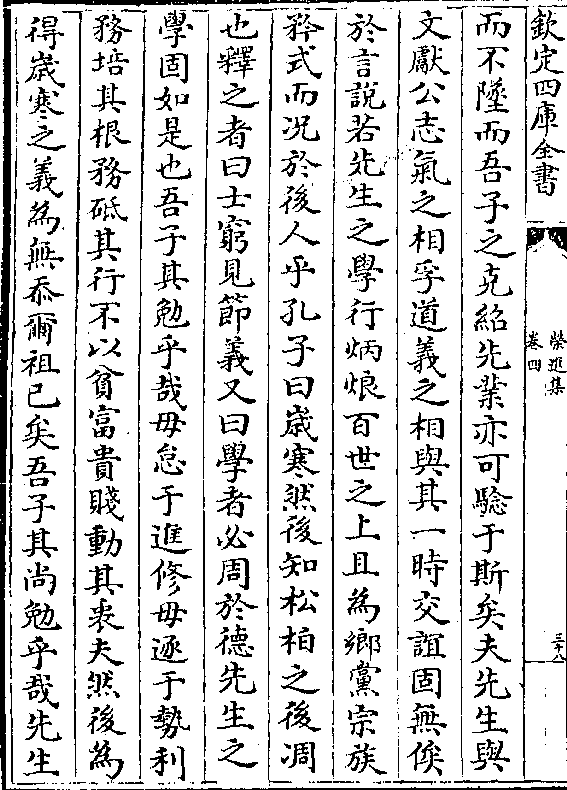 欽定四庫全書
榮進集
卷四
三十八
而不墜而吾子之克紹先業亦可驗于斯矣夫先生與
文獻公志氣之相孚道義之相與其一時交誼固無俟
於言說若先生之學行炳烺百世之上且為鄉黨宗族
矜式而况於後人乎孔子曰歲寒然後知松柏之後凋
也釋之者曰士窮見節義又曰學者必周於德先生之
學固如是也吾子其勉乎哉毋怠于進修毋逐于勢利
務培其根務砥其行不以貧富貴賤動其衷夫然後為
得歲寒之義為無忝爾祖已矣吾子其尚勉乎哉先生